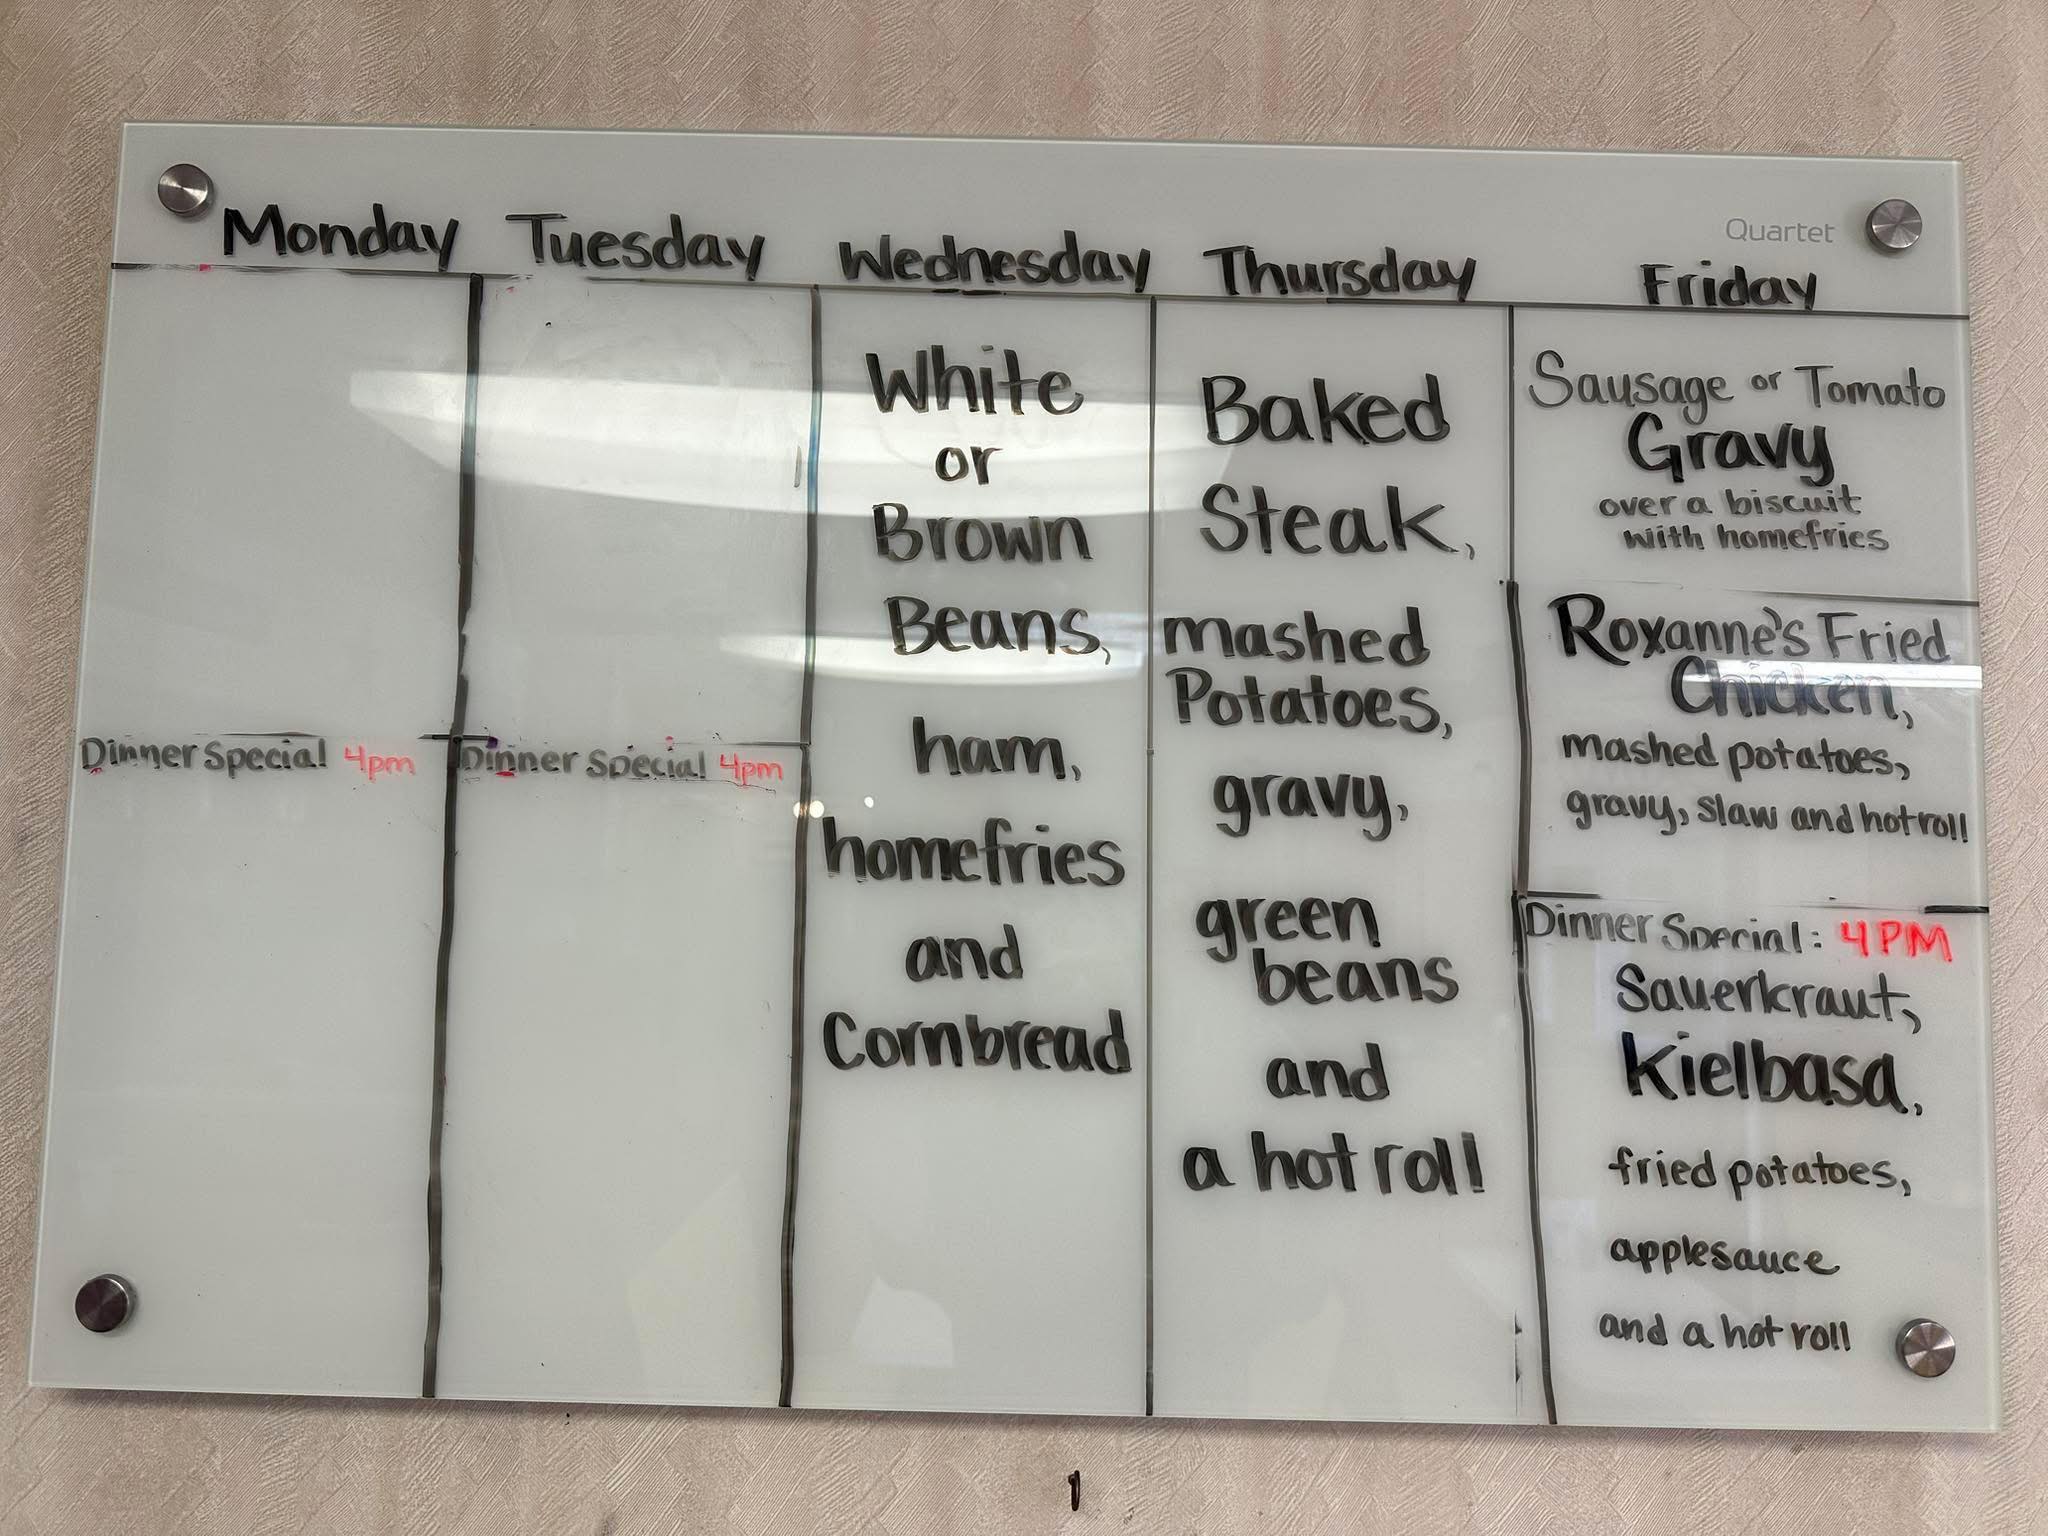 Quartet
Monday Tuesday Wednesday Thursday Friday
Dinner Special 4pm
Dinner Special 4pm
White
or
Brown
Beans,
ham,
homefries
and
Cornbread
Baked
Steak,
mashed
Potatoes,
gravy,
green
beans
and
a hot roll
Sausage or Tomato
Gravy
over a biscuit
with homefries
Roxanne's Fried
Chicken,
mashed potatoes,
gravy, slaw and hot roll
Dinner Special: 4PM
Sauerkraut,
Kielbasa,
fried potatoes,
applesauce
and a hot roll